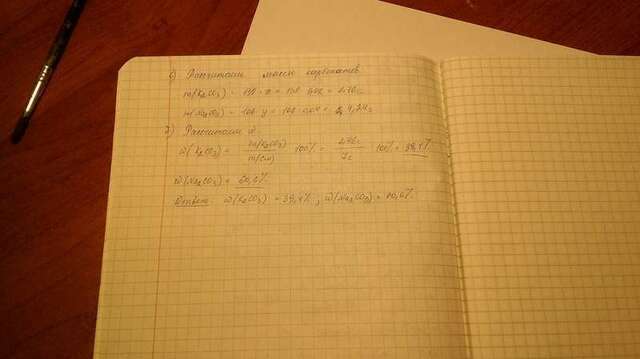 6) Рассчитаем массы карбонатов
m(K₂CO₃) =
m(Na₂CO₃) = 106 y = 106 = 4,24г
7) Рассчитаем ω
ω(K₂CO₃) = m(K₂CO₃) / m(см) 100% = 2,76г / 7г 100% = 39,4%
ω(Na₂CO₃) = 60,6%
Ответ: ω(K₂CO₃) = 39,4%, ω(Na₂CO₃) = 60,6%